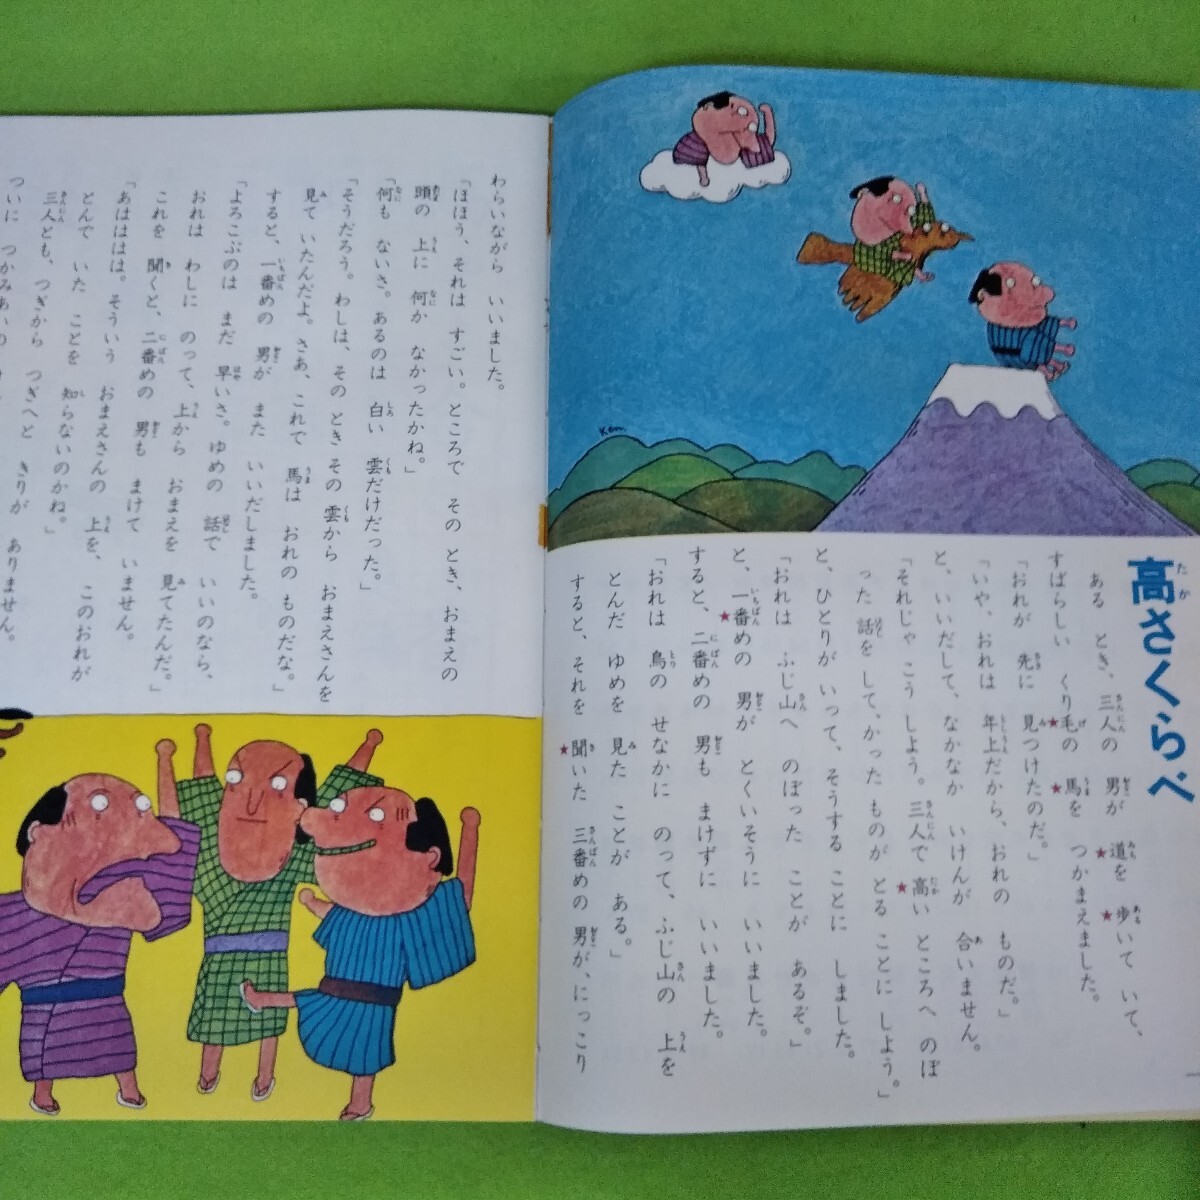 高さくらべ
たか
ある とき、三人の 男が 道を 歩いて いて、
すばらしい くり毛の 馬を つかまえました。
「おれが 先に 見つけたのだ。」
「いや、おれは 年上だから、おれの ものだ。」
と、いいだして、なかなか いけんが 合いません。
「それじゃ こう しよう。三人で 高い ところへ のぼ
った 話を して、かった ものが とる ことに しよう。」
と、ひとりが いって、そうする ことに しました。
「おれは ふじ山へ のぼった ことが あるぞ。」
と、一番めの 男が とくいそうに いいました。
すると、二番めの 男も まけずに いいました。
「おれは 鳥の せなかに のって、ふじ山の 上を
とんだ ゆめを 見た ことが ある。」
すると、それを 聞いた 三番めの 男が、にっこり
わらいながら いいました。
「ほほう、それは すごい。ところで その とき、おまえの
頭の 上に 何か なかったかね。」
「何も ないさ。あるのは 白い 雲だけだった。」
「そうだろう。わしは、その とき その 雲から おまえさんを
見て いたんだよ。さあ、これで 馬は おれの ものだな。」
すると、一番めの 男が また いいだしました。
「よろこぶのは まだ 早いさ。ゆめの 話で いいのなら、
おれは わしに のって、上から おまえを 見てたんだ。」
これを 聞くと、二番めの 男も まけて いません。
「あはははは。そういう おまえさんの 上を、このおれが
とんで いた ことを 知らないのかね。」
三人とも、つぎから つぎへと きりが ありません。
ついに つかみあいの
Kem